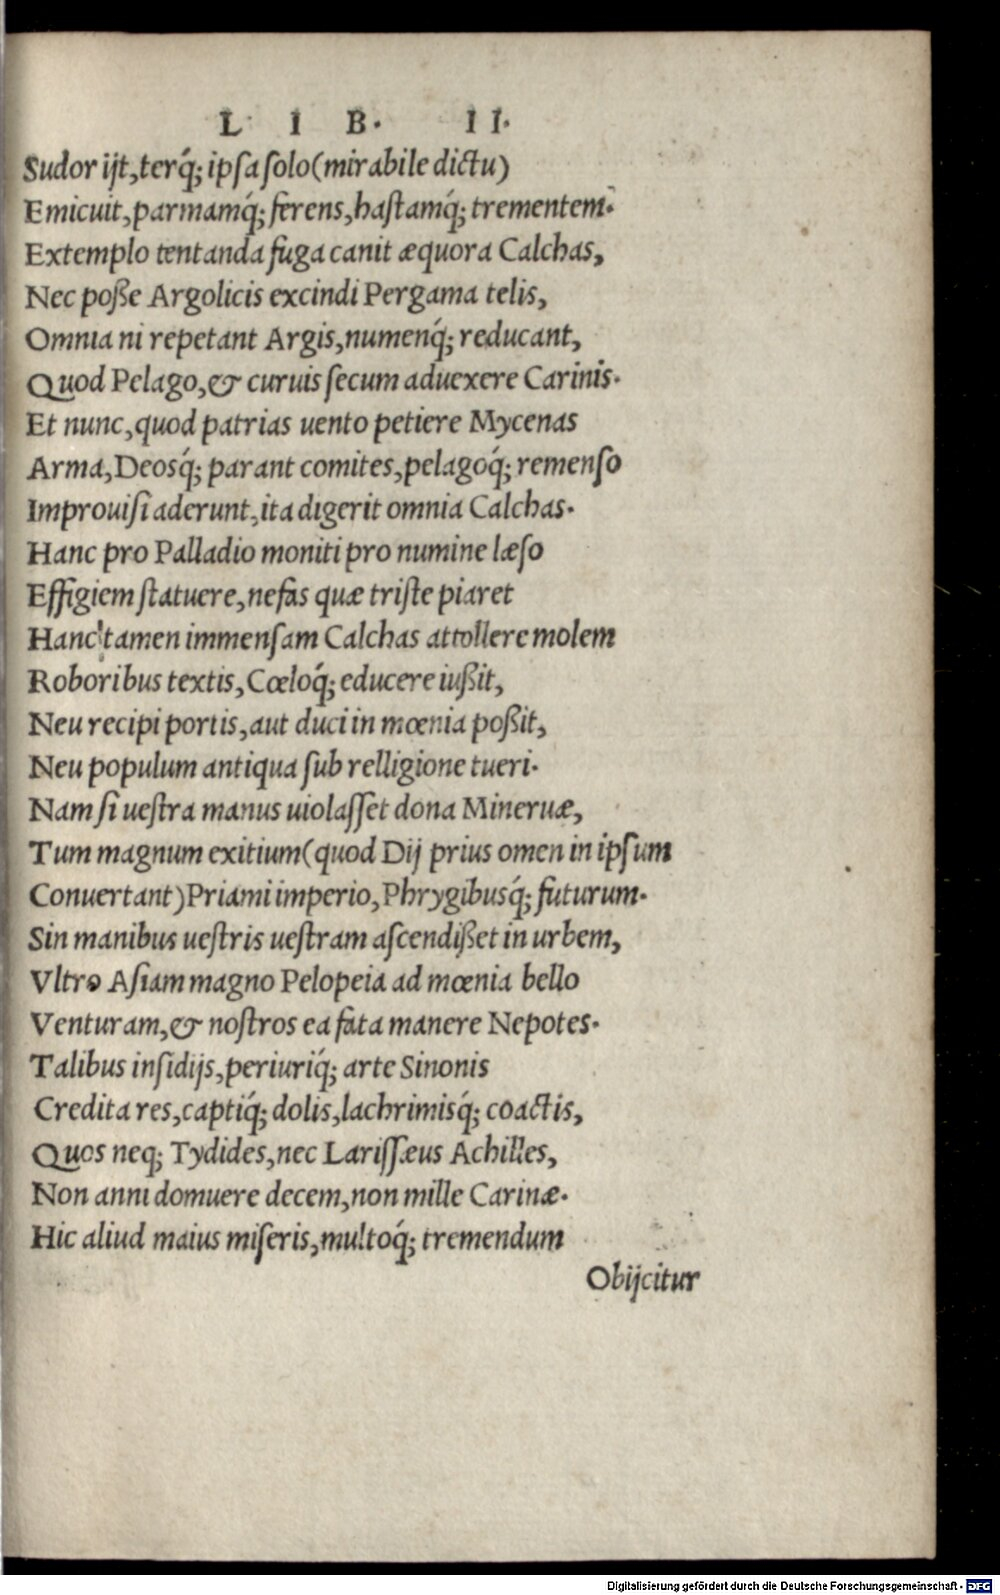 L I B. II.
Sudor ijt,terq́; ipsa solo(mirabile dictu)
Emicuit,parmamq́; ferens,hastamq́; trementem.
Extemplo tentanda fuga canit æquora Calchas,
Nec poße Argolicis excindi Pergama telis,
Omnia ni repetant Argis,numenq́; reducant,
Quod Pelago,& curuis secum aduexere Carinis.
Et nunc,quod patrias uento petiere Mycenas
Arma,Deosq́; parant comites,pelagoq́; remenso
Improuisi aderunt,ita digerit omnia Calchas.
Hanc pro Palladio moniti pro numine læso
Effigiem statuere,nefas quæ triste piaret
Hanc tamen immensam Calchas attollere molem
Roboribus textis,Cœloq́; educere iußit,
Neu recipi portis,aut duci in mœnia poßit,
Neu populum antiqua sub relligione tueri.
Nam si uestra manus uiolasset dona Mineruæ,
Tum magnum exitium(quod Dij prius omen in ipsum
Conuertant)Priami imperio,Phrygibusq́; futurum.
Sin manibus uestris uestram ascendißet in urbem,
Vltro Asiam magno Pelopeia ad mœnia bello
Venturam,& nostros ea fata manere Nepotes.
Talibus insidijs,periuriq́; arte Sinonis
Credita res,captiq́; dolis,lachrimisq́; coactis,
Quos neq; Tydides,nec Larissæus Achilles,
Non anni domuere decem,non mille Carinæ.
Hic aliud maius miseris,multoq́; tremendum
Obijcitur
Digitalisierung gefördert durch die Deutsche Forschungsgemeinschaft - DFG